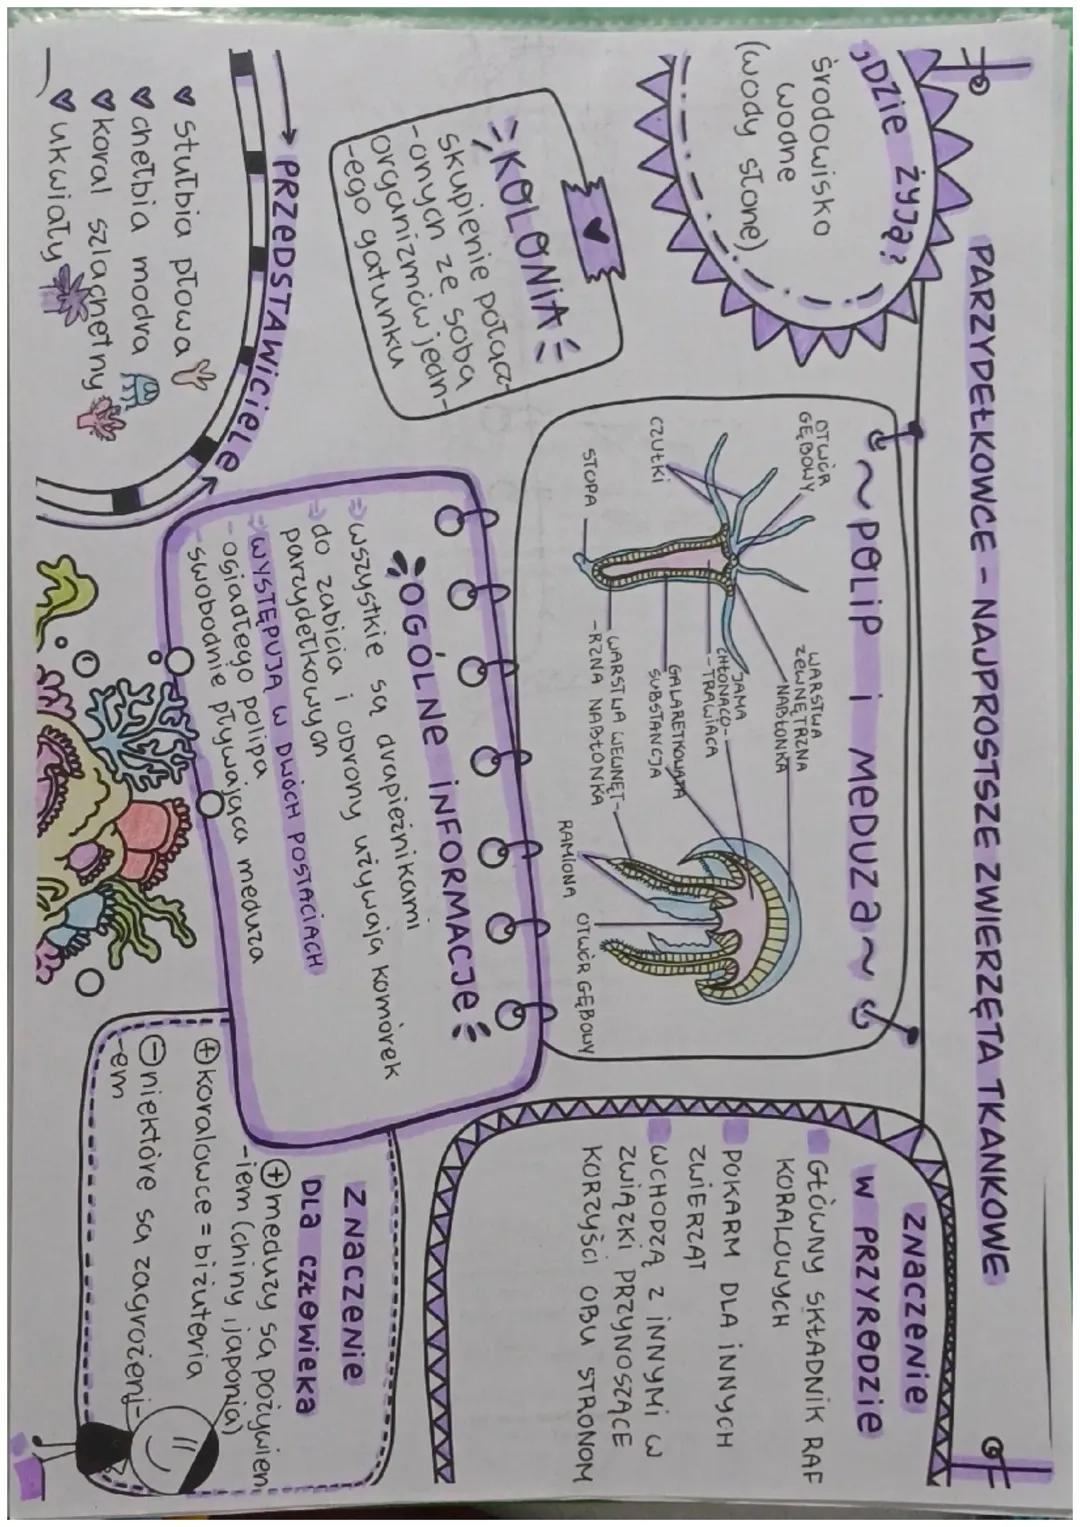 PARZYDEŁKOWCE - NAJPROSTSZE ZWIERZĘTA TKANKOWE
GDZIE ŻYJĄ?
środowisko
wodne
(wody słone)
KOLONIA
skupienie połącz-
-onych ze sobą
organizmów jedn-
-ego gatunku
PRZEDSTAWICIELE
stułbia płowa
chełbia modra
koral szlachetny
ukwiały
~POLIP i MEDUZA~
OTWÓR
GĘBOWY
CZUŁKI
STOPA
WARSTWA
ZEWNĘTRZNA
NABŁONKA
JAMA
CHŁONĄCO-
-TRAWIĄCA
GALARETKOWATA
SUBSTANCJA
WARSTWA WEWNĘT-
-RZNA NABŁONKA
RAMIONA
OTWÓR GĘBOWY
OGÓLNE INFORMACJE
wszystkie są drapieżnikami
do zabicia i obrony używają komórek
parzydełkowych
WYSTĘPUJĄ W DWÓCH POSTACIACH
- osiadłego polipa
- swobodnie pływająca meduza
ZNACZENIE
W PRZYRODZIE
GŁÓWNY SKŁADNIK RAF
KORALOWYCH
POKARM DLA INNYCH
ZWIERZĄT
WCHODZĄ Z INNYMI W
ZWIĄZKI PRZYNOSZĄCE
KORZYŚCI OBU STRONOM
ZNACZENIE
DLA CZŁOWIEKA
⊕ meduzy są pożywien
-iem (chiny i japonia)
⊕ koralowce = biżuteria
⊖ niektóre są zagrożeni-
-em